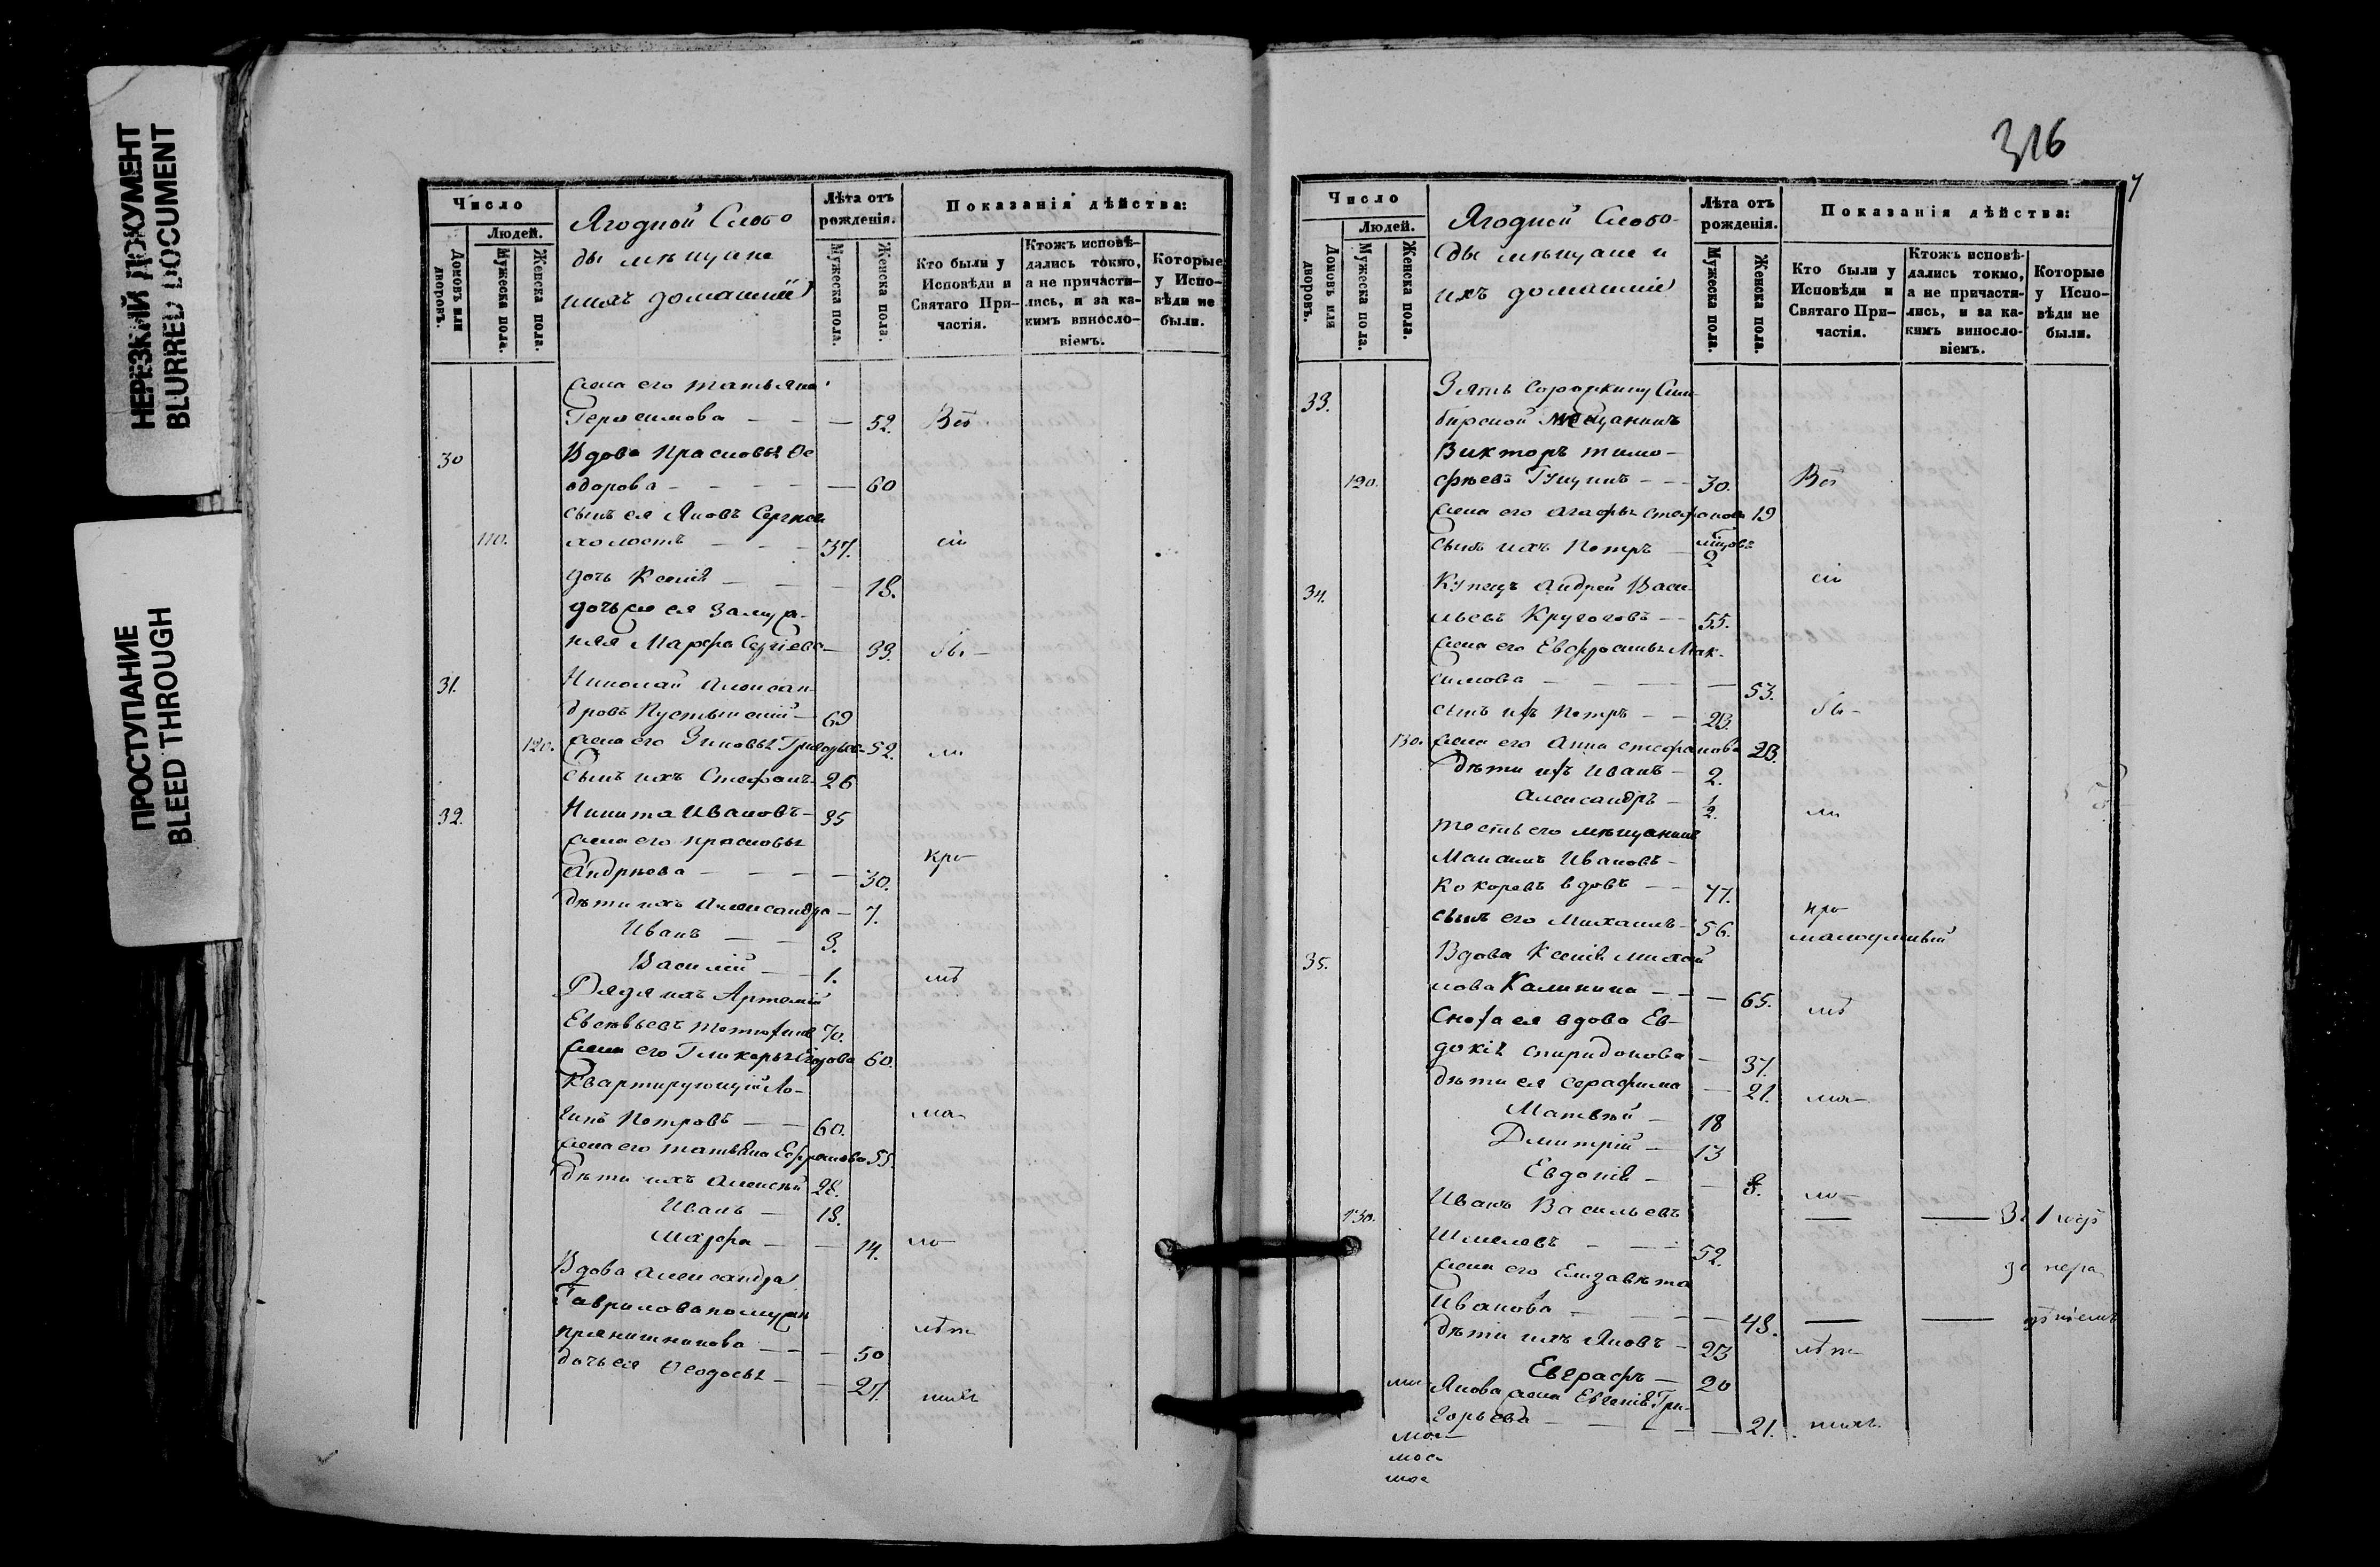 НЕРЕЗКИЙ ДОКУМЕНТ
BLURRED DOCUMENT
ПРОСТУПАНИЕ
BLEED THROUGH
Число
Людей.
Домовъ или дворовъ.
Мужеска пола.
Женска пола.
Ягодной Слобо
ды мѣщане
ихъ домашніе
Лѣта отъ рожденія.
Мужеска пола.
Женска пола.
Показанія дѣйства:
Кто были у Исповѣди и Святаго Причастія.
Ктожъ исповѣдались токмо, а не причастились, и за какимъ винословіемъ.
Которые у Исповѣди не были.
Жена его Татьяна
Герасимова — — — 52. Всѣ
30 Вдова Прасковья Ѳе
одорова — — — 60
сынъ ея Яковъ Сергѣев
110. холостъ — — 37. сіи
дочь Ксенія — — 18.
дочь ея замуж-
няя Марфа Сергіева — 33. бы-
31. Николай Алексан
дровъ Пустынскій — 69
120. Жена его Зиновья Григорье- 52. ли
сынъ ихъ Стефанъ 26
32. Никита Ивановъ — 35
Жена его Прасковья
Андрѣева — — — 30. кро
дѣти ихъ Александра — 7.
Иванъ — — 3.
Василій — — 1. мѣ
Дядя ихъ Артемій
Евсѣвьевъ 70.
Жена его Гликерья 60.
Квартирующій Ло-
гинъ Петровъ — — 60. ма-
Жена его Татьяна 55.
дѣти ихъ Алексѣй 28.
Иванъ — 18.
Марфа — — 14. ло-
Вдова Александра
Гаврилова
Прянишникова — — 50 лѣт-
дочь ея Ѳеодосья — — 27. нихъ
316
7
Число
Людей.
Домовъ или дворовъ.
Мужеска пола.
Женска пола.
Ягодной Слобо-
ды мѣщане и
ихъ домашніе
Лѣта отъ рожденія.
Мужеска пола.
Женска пола.
Показанія дѣйства:
Кто были у Исповѣди и Святаго Причастія.
Ктожъ исповѣдались токмо, а не причастились, и за какимъ винословіемъ.
Которые у Исповѣди не были.
33. Зять Сорокину Сим-
бирской мѣщанинъ
Викторъ Тимо-
120. фѣевъ Гущинъ — — 30. Всѣ
Жена его Агафья Стефанова 19
сынъ ихъ Петръ — 2
34. Купецъ Андрей Васи- сіи
льевъ Круговъ — — 55.
Жена его Евфросинья Мак-
симова — — — 53.
сынъ их Петръ — — 23. бы-
130. Жена его Анна Стефанова 23.
дѣти ихъ Иванъ — 2.
Александръ — 1/2. ли
тесть его мѣщанинъ
Максимъ Ивановъ —
Кокоревъ вдовъ — — 77. кро
сынъ его Михаилъ — 56. малоумный
35. Вдова Ксенія Михай
лова Калинина — — — 65. мѣ
Сноха ея вдова Ев-
докія Спиридонова — 37.
дѣти ея Серафима — 21. ма-
Матвѣй — 18
Дмитрій — 13
Евдокія — — 8. ло-
130. Иванъ Васильевъ — —
Шмелевъ — — 52. за нера-
Жена его Елизавета
Иванова — — — 48. — —
дѣти ихъ Яковъ — 23 лѣт-
Евграфъ — 20
Якова жена Евгенія Гри-
горьева — — — 21. нихъ.